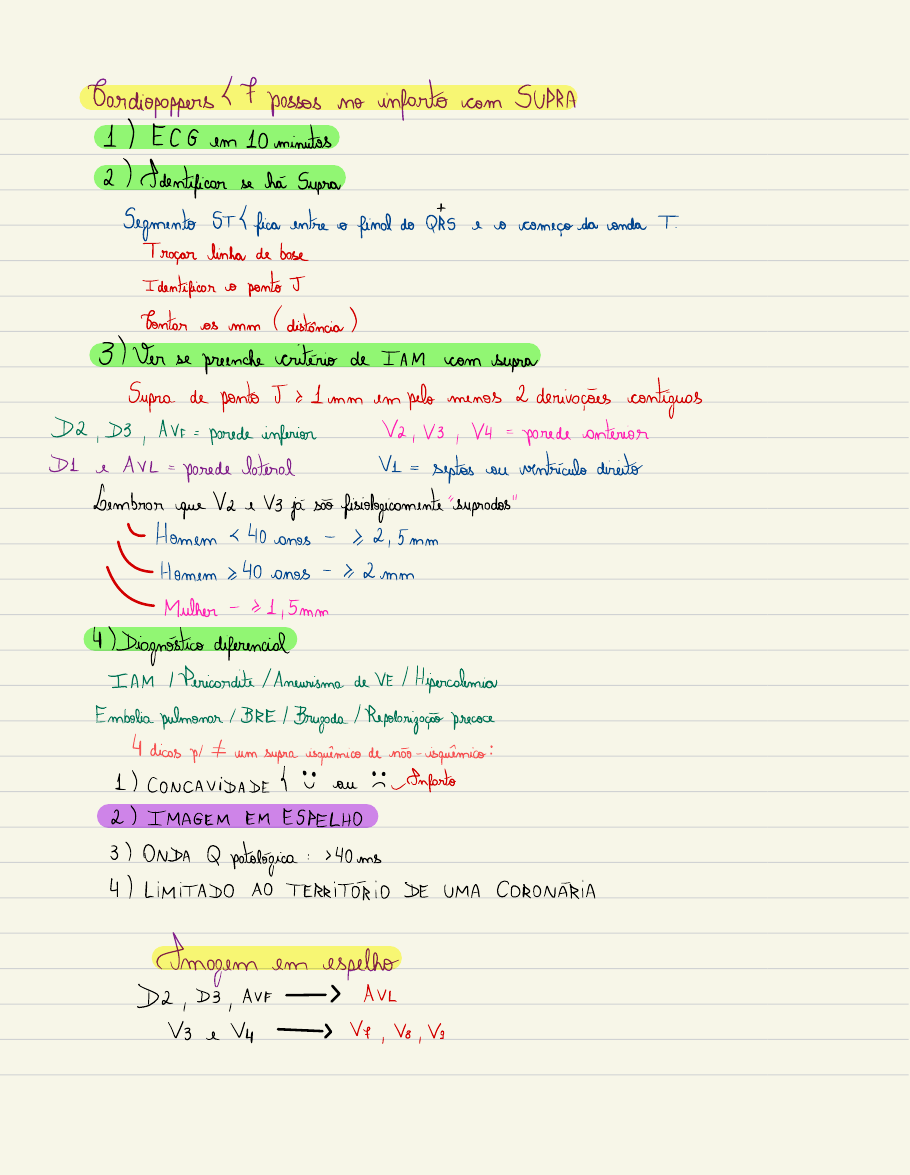 Cardiopappers < 7 passos no infarto com SUPRA
1) ECG em 10 minutos
2) Identificar se há Supra
Segmento ST < fica entre o final do QRS e o começo da onda T.
Traçar linha de base
Identificar o ponto J
Contar os mm (distância)
3) Ver se preenche critério de IAM com supra
Supra de ponto J ≥ 1mm em pelo menos 2 derivações contíguas
D2, D3, AVF = parede inferior V2, V3, V4 = parede anterior
D1 e AVL = parede lateral V1 = septos ou ventrículo direito
Lembrar que V2 e V3 já são fisiologicamente "suprados"
Homem < 40 anos - ≥ 2,5mm
Homem ≥ 40 anos - ≥ 2mm
Mulher - ≥ 1,5mm
4) Diagnóstico diferencial
IAM / Pericardite / Aneurisma de VE / Hipercalemia
Embolia pulmonar / BRE / Brugada / Repolarização precoce
4 dicas p/ ≠ um supra isquêmico de não-isquêmico:
1) CONCAVIDADE { ou Infarto
2) IMAGEM EM ESPELHO
3) ONDA Q patológica: >40ms
4) LIMITADO AO TERRITÓRIO DE UMA CORONÁRIA
Imagem em espelho
D2, D3, AVF → AVL
V3 e V4 → V7, V8, V9